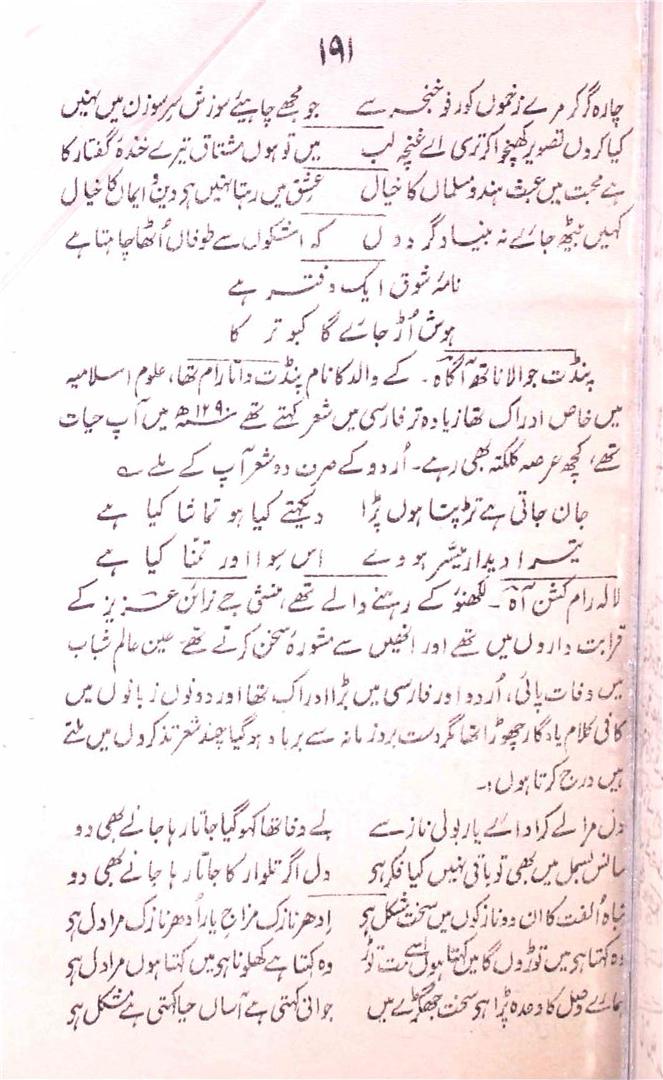 ۱۹۱
چارہ گر کر مرے زخموں کو رفو خنجر سے جو مجھے چاہیئے سوزش سر سوزن میں نہیں
کیا کروں تصویر کھنچوا کر تری اے غنچہ لب میں تو ہوں مشتاق تیرے خندۂ گفتار کا
ہے محبت میں عبث ہندو مسلماں کا خیال عشق میں رہتا نہیں ہو دین و ایماں کا خیال
کہیں بیٹھ جائے نہ بنیاد گر دو ں کہ اشکوں سے طوفاں اُٹھا چاہتا ہے
نامۂ شوق ایک دفتر ہے
ہوش اُڑ جائے گا کبوتر کا
پنڈت جوالا ناتھ آگاہ۔ کے والد کا نام پنڈت داتا رام تھا، علوم اسلامیہ
میں خاص ادراک تھا زیادہ تر فارسی میں شعر کہتے تھے ۱۲۹۰ھ میں آپ حیات
تھے، کچھ عرصہ کلکتہ بھی رہے۔ اُردو کے صرف دو شعر آپ کے ملے ؎
جان جاتی ہے تڑپتا ہوں پڑا دیکھتے کیا ہو تماشا کیا ہے
تیرا دیدار میسر ہووے اس سوا اور تمنّا کیا ہے
لالہ رام کشن آہ ۔ لکھنؤ کے رہنے والے تھے، منشی جے نرائن عزیز کے
قرابت داروں میں تھے اور انھیں سے مشورۂ سخن کرتے تھے عین عالم شباب
میں وفات پائی، اُردو اور فارسی میں بڑا ادراک تھا اور دونوں زبانوں میں
کافی کلام یادگار چھوڑا تھا مگر دست برد زمانہ سے برباد ہوگیا چند شعر تذکروں میں ملتے
ہیں درج کرتا ہوں:۔
دل مرا لے کر ادائے یار بولی ناز سے بے وفا تھا کہو گیا جاتا رہا جانے بھی دو
سانس بسمل میں بھی تو باقی نہیں کیا فکر ہو دل اگر تلوار کا جاتا رہا جانے بھی دو
نباہ اُلفت کا ان دو نازکوں میں سخت مشکل ہو اِدھر نازک مزاج یار اُدھر نازک مرا دل ہو
وہ کہتا ہو میں توڑوں گا میں کہتا ہوں اسے مت توڑ وہ کہتا ہے کھلونا ہو میں کہتا ہوں مرا دل ہو
ہمارے وصل کا وعدہ پڑا ہو سخت جھگڑے میں جوانی کہتی ہے آساں حیا کہتی ہے مشکل ہو